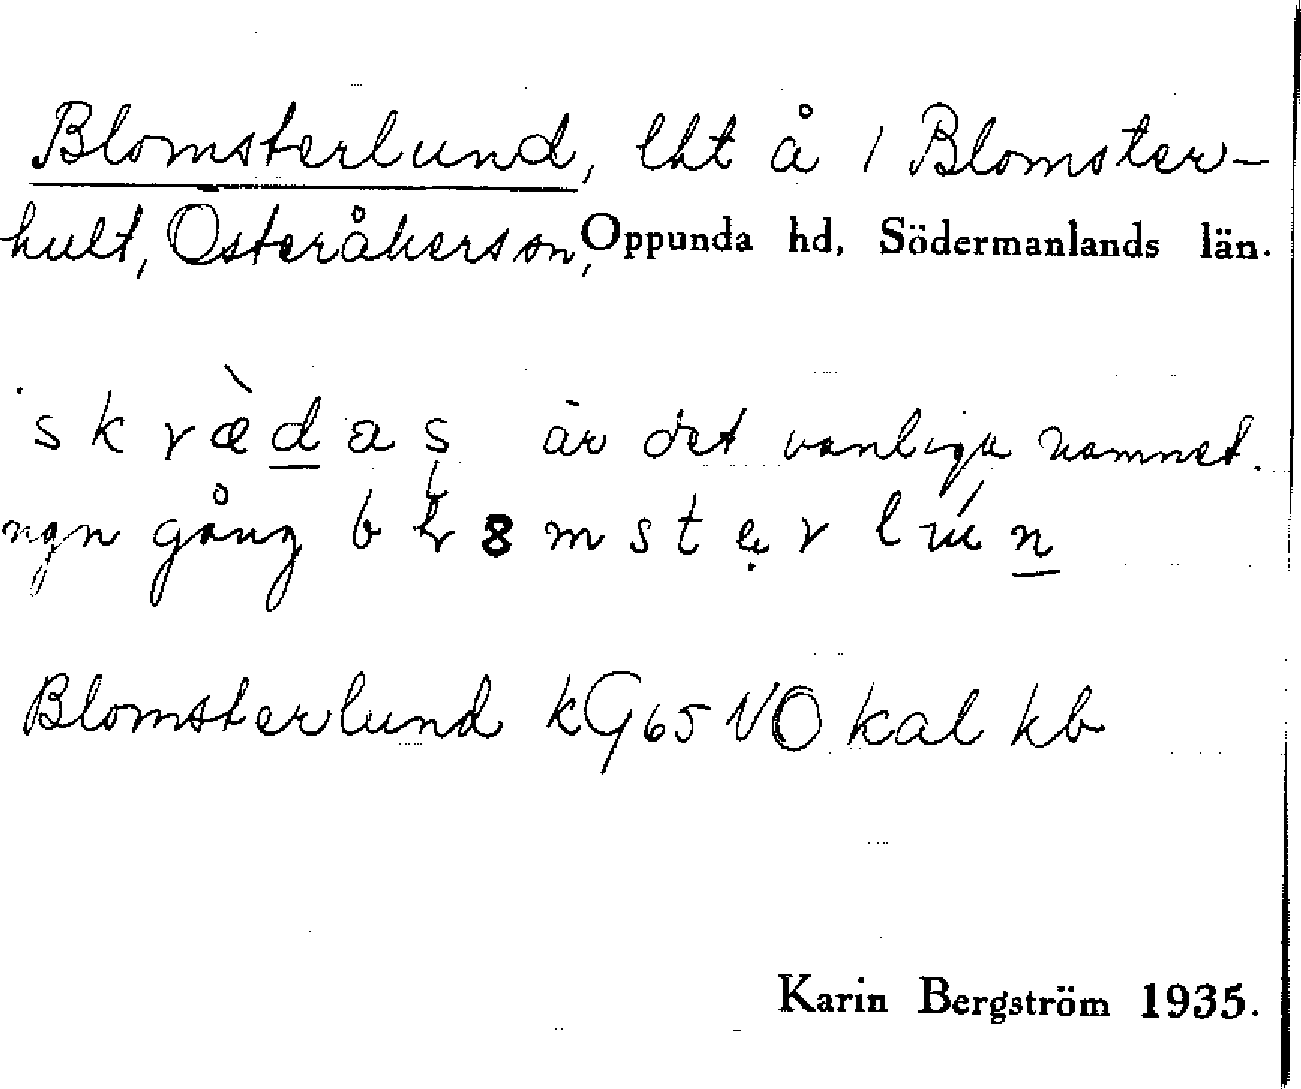 Blomsterlund, lht å 1 Blomster-
hult, Österåkers sn, Oppunda hd, Södermanlands län.
skræ̀das är det vanliga namnet.
ngn gång
Blomsterlund kG65NO kal kb
Karin Bergström 1935.